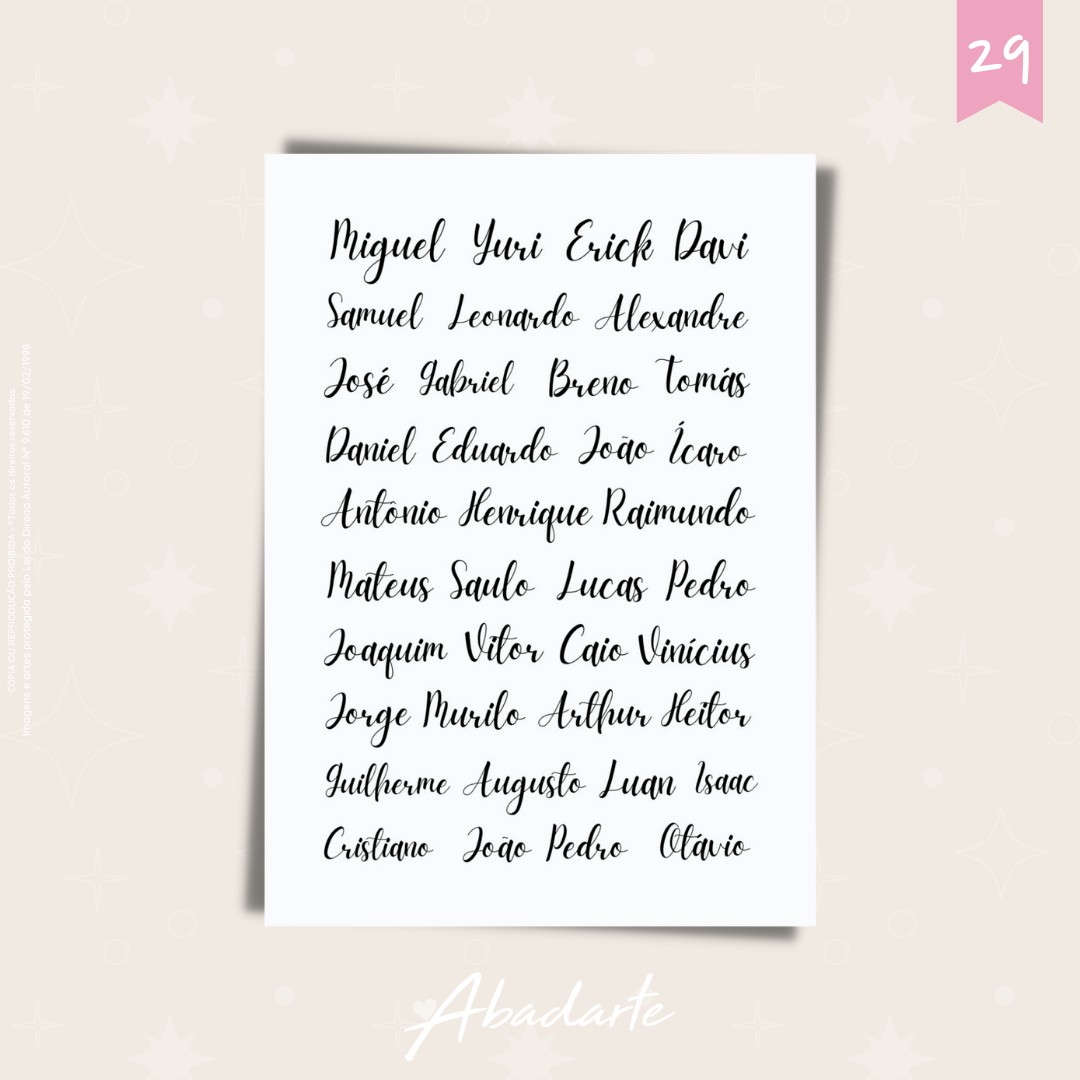 29
Miguel Yuri Erick Davi
Samuel Leonardo Alexandre
José Gabriel Breno Tomás
Daniel Eduardo João Ícaro
Antônio Henrique Raimundo
Mateus Saulo Lucas Pedro
Joaquim Vitor Caio Vinícius
Jorge Murilo Arthur Heitor
Guilherme Augusto Luan Isaac
Cristiano João Pedro Otávio
Abadarte
CÓPIA OU REPRODUÇÃO PROIBIDA - ®Todos os direitos reservados
Imagens e artes protegida pela Lei do Direito Autoral Nº 9.610 de 19/02/1998